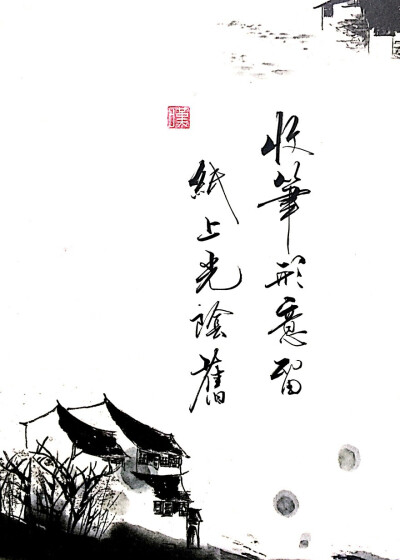 收筆形意留
紙上光陰舊